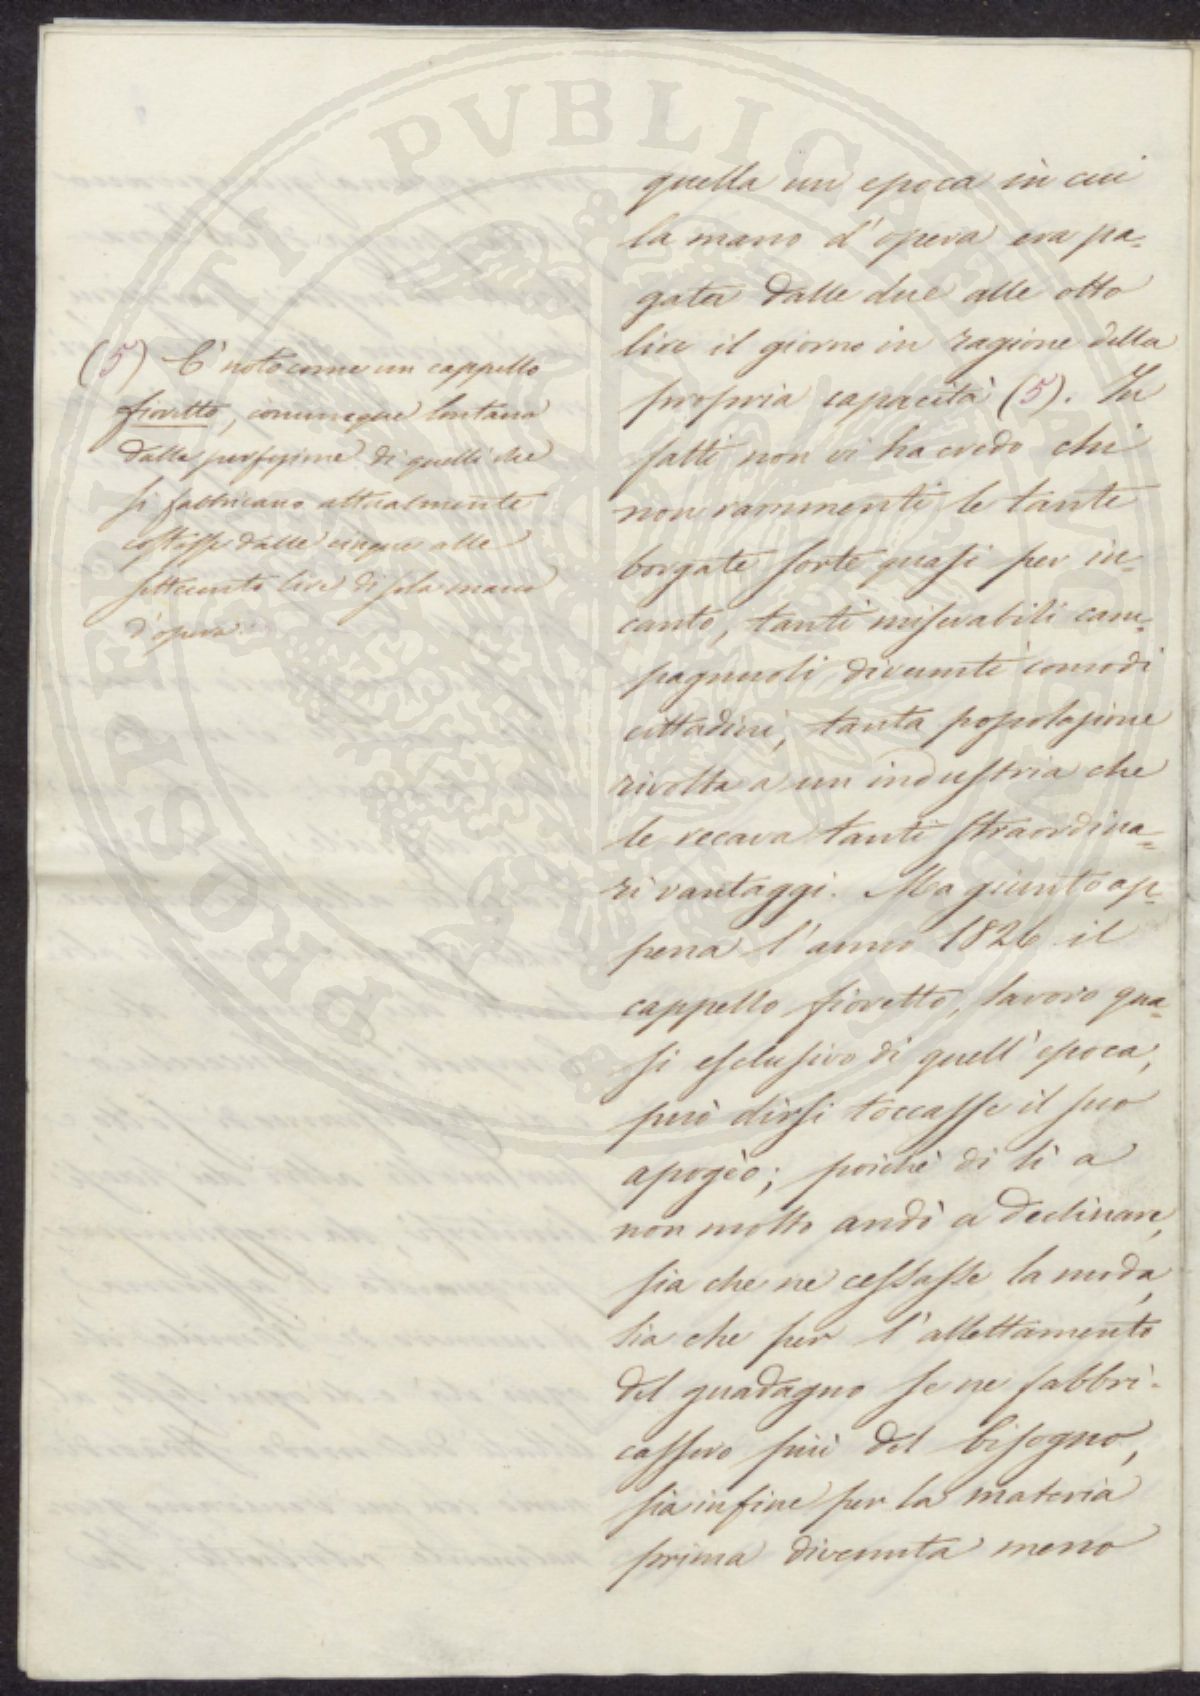 quella un epoca in cui
la mano d'opera era pa=
gata dalle due alle otto
lire il giorno in ragione della
propria capacità (5). In
fatti non vi ha credo chi
non rammenti le tante
borgate sorte quasi per in=
canto, tanti miserabili cam=
pagnuoli divenuti comodi
cittadini, tanta popolazione
rivolta a un industria che
le recava tanti straordina=
ri vantaggi. Ma giunto ap=
pena l'anno 1826 il
cappello fioretto, lavoro qua=
si esclusivo di quell'epoca,
può dirsi toccasse il suo
apogèo; poichè di lì a
non molto andò a declinare,
sia che ne cessasse la moda,
sia che per l'allettamento
del guadagno se ne fabbri-
cassero più del bisogno,
sia infine per la materia
prima divenuta meno
(5) È noto come un cappello
fioretto, comunque lontano
dalla perfezione di quelli che
si fabbricano attualmente
costasse dalle cinque alle
settecento lire di sola mano
d'opera.
PROSPERITATI PVBLICAE AVGENDAE